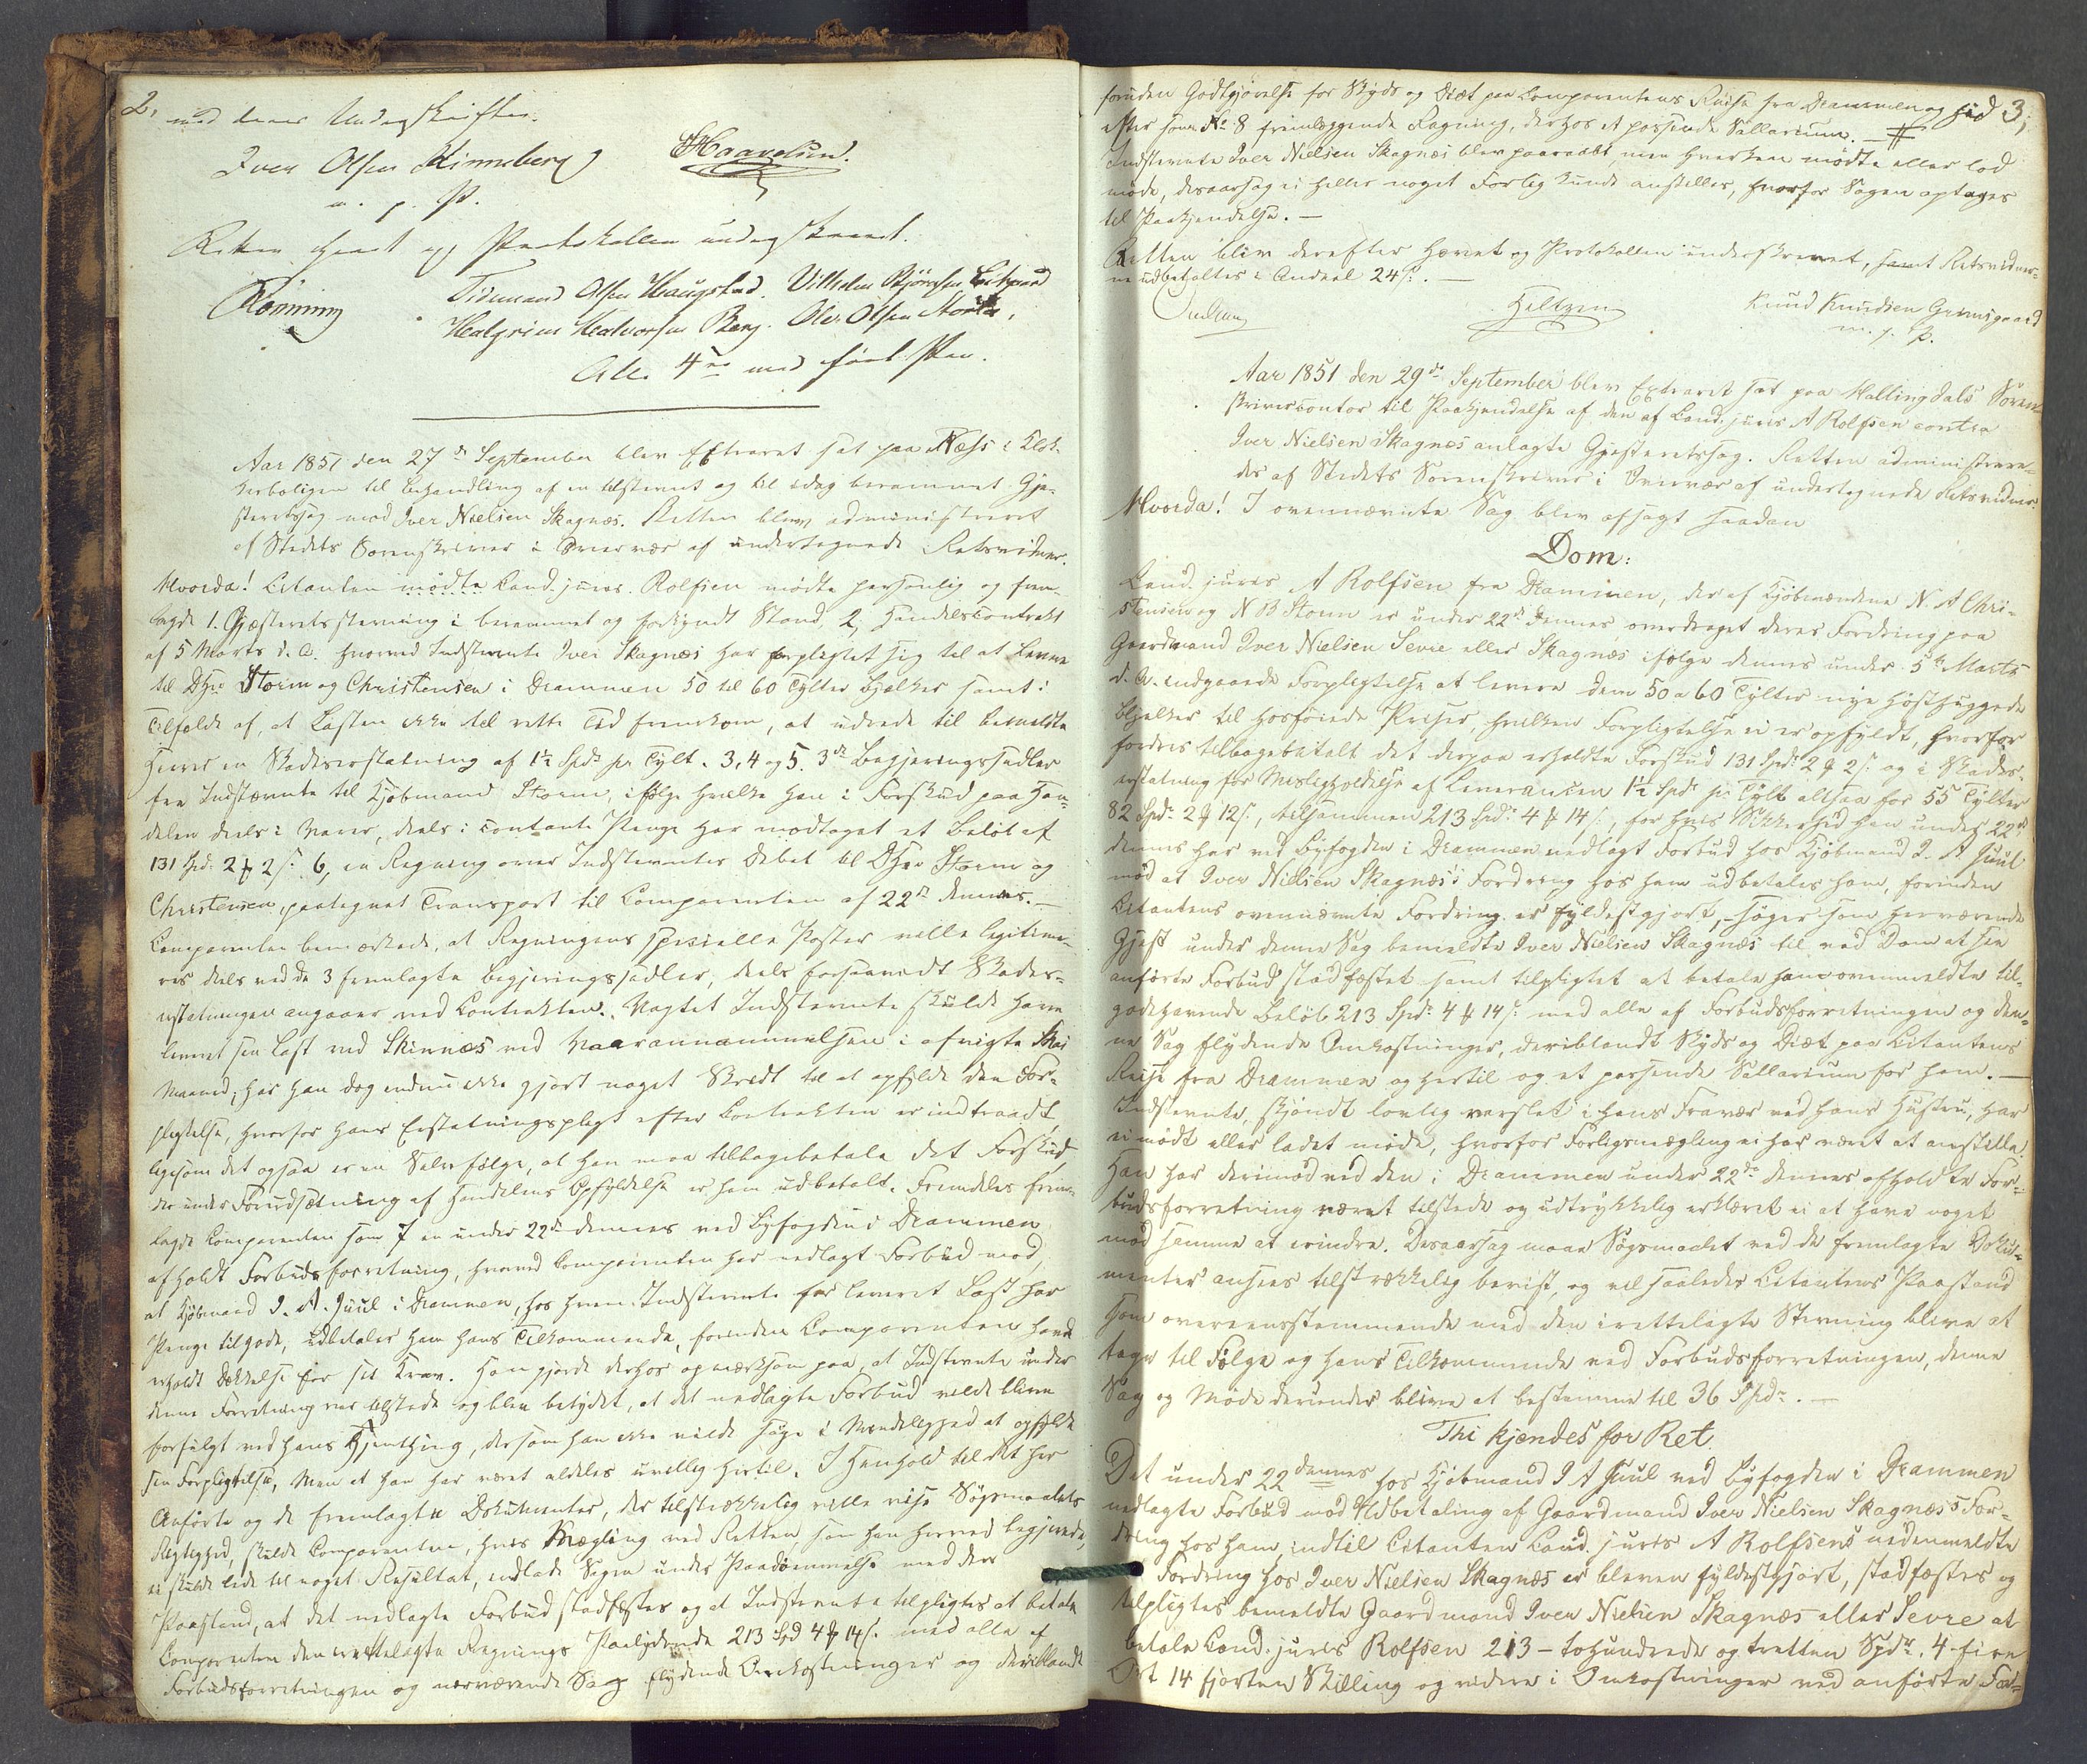 2.
med deres Underskrifter.
Iver Olsen Kinneberg Haavelsen.
m. p. P.
Retten hævet og Protokollen underskrevet.
Rønning Tidemand Olsen Haugstad. Vilhelm Bjørnsen
Halgrim Halvorsen Berg. Ole Olsen
Alle 4re med ført Pen.
Aar 1851 den 27de September blev Extraret sat paa Næss i Klok-
kerboligen til Behandling af en tilstevnt og til idag berammet Gjæ-
steretssag mod Iver Nielsen Skagnæs. Retten blev administreret
af Stedets Sorenskriver i Overvær af undertegnede Retsvidner.
Hvorda! Citanten mødte Cand. juris. Rolfsen mødte personlig og frem-
lagde 1. Gjæsteretsstevning i berammet og forkyndt Stand, 2, Handelscontrakt
af 5 Marts d. A. hvorved Indstevnte Iver Skagnæs har forpligtet sig til at levere
til DHrr Storm og Christensen i Drammen 50 til 60 Tylter Bjelker samt i
Tilfælde af, at Lasten ikke til rette Tid fremkom, at udrede til bemeldte
Herrer en Skadeserstatning af 1½ Spd. pr Tylt. 3, 4 og 5. 3de Begjæringssedler
fra Indstævnte til Kjøbmand Storm, ifølge hvilke han i Forskud paa Han-
delen deels i Varer, deels i contante Penge har modtaget et Beløb af
131 Spd. 2 ƒ 2 s. 6, en Regning over Indstevntes Debet til DHrr Storm og
Christensen, paategnet Transport til Comparenten af 22de dennes. —
Comparenten bemærkede, at Regningens specielle Poster ville legitime-
res deels ved de 3 fremlagte Begjæringssedler, deels forsaavidt Skades-
erstatningen angaaer ved Contrakten. Uagtet Indstevnte skulde have
leveret sin Last ved Skinnæs ved Vaarannammelsen i afvigte Mai
Maaned, har han dog endnu ikke gjort noget Skridt til at opfylde den For-
pligtelse, hvorfor hans Erstatningspligt efter Contrakten er indtraadt,
ligesom det ogsaa er en Selvfølge, at han maa tilbagebetale det Forskud,
der under Forudsætning af Handelens Opfyldelse er ham udbetalt. Fremdeles frem-
lagde Comparenten som 7 en under 22de dennes ved Byfogden i Drammen
afholdt Forbudsforretning, hvorved Comparenten har nedlagt Forbud mod,
at Kjøbmand I. A. Juul i Drammen, hos hvem Indstevnte for leveret Last har
Penge tilgode, udbetaler ham hans Tilkommende, forinden Comparenten havde
erholdt Dækkelse for sit Krav. Han gjorde derhos opmærksom paa, at Indstevnte under
denne Forretning var tilstede og blev betydet, at det nedlagte Forbud vilde blive
forfulgt ved hans Hjemthing, dersom han ikke vilde søge i Mindelighed at opfylde
sin Forpligtelse, men at han har været aldeles uvillig hertil. I Henhold til det her
Anførte og de fremlagte Dokumenter, der tilstrækkelig ville vise Søgsmaalets
Rigtighed, skulde Comparenten, hvis Mægling ved Retten, som han herved begjærede,
ei skulde lede til noget Resultat, indlade Sagen under Paadømmelse med den
Paastand, at det nedlagte Forbud stadfæstes og at Indstevnte tilpligtes at betale
Comparenten den irettelagte Regnings Paalydende 213 Spd 4 ƒ 14 s. med alle af
Forbudsforretningen og nærværende Sag flydende Omkostninger og deriblandt
3,
foruden Godtgjørelse for Skyds og Diæt paa Comparentens Reise fra Drammen og hid
efter som No 8 fremlæggende Regning, derhos et passende Sallarium. —
Indstevnte Iver Nielsen Skagnæs blev paaraabt, men hverken mødte eller lod
møde, desaarsag ei heller noget Forlig kunde anstilles, hvorfor Sagen optages
til Paakjendelse. —
Retten blev derefter hævet og Protokollen underskrevet, samt Retsvidner-
ne udbetaltes i Andeel 24 s. —
Heltzen Knud Knudsen Grimsgaard
m. p. P.
Aar 1851 den 29de September blev Extraret sat paa Hallingdals Soren-
skrivercontor til Paakjendelse af den af Cand. juris A Rolfsen contra
Iver Nielsen Skagnæs anlagte Gjæsteretssag. Retten administrere-
des af Stedets Sorenskriver i Overvær af undertegnede Retsvidner.
Hvorda! I ovennævnte Sag blev afsagt saadan
Dom:
Cand. juris A Rolfsen fra Drammen, der af Kjøbmændene N. A Chri-
stensen og N B Storm er under 22de dennes overdraget deres Fordring paa
Gaardmand Iver Nielsen Sevre eller Skagnæs ifølge dennes under 5te Marts
d. A. indgaaede Forpligtelse at levere dem 50 a 60 Tylter nye høsthuggede
Bjelker til hosføiede Priser, hvilken Forpligtelse ei er opfyldt, hvorfor
fordres tilbagebetalt det derpaa erholdte Forskud 131 Spd. 2 ƒ 2 s. og i Skades-
erstatning for Misligholdelse af Leverancen 1½ Spd. pr Tylt altsaa for 55 Tylter
82 Spd. 2 ƒ 12 s., tilsammen 213 Spd. 4 ƒ 14 s., for hvis Sikkerhed han under 22de
dennes har ved Byfogden i Drammen nedlagt Forbud hos Kjøbmand I. A Juul
mod at Iver Nielsen Skagnæs's Fordring hos ham udbetales ham, forinden
Citantens ovennævnte Fordring er fyldestgjort, – søger som herværende
Gjæst under denne Sag bemeldte Iver Nielsen Skagnæs til ved Dom at see
anførte Forbud stadfæstet samt tilpligtet at betale ham ovenmeldte til-
godehavende Beløb 213 Spd. 4 ƒ 14 s. med alle af Forbudsforretningen og den-
ne Sag flydende Omkostninger, deriblandt Skyds og Diæt paa Citantens
Reise fra Drammen og hertil og et passende Sallarium for ham. —
Indstevnte, skjøndt lovlig varslet i hans Fravær ved hans Hustru, har
ei mødt eller ladet møde, hvorfor Forligsmægling ei har været at anstille.
Han har derimod ved den i Drammen under 22de dennes afholdte For-
budsforretning været tilstede og udtrykkelig erklæret ei at have noget
mod samme at erindre. Desaarsag maa Søgsmaalet ved de fremlagte Doku-
menter ansees tilstrækkelig beviist, og vil saaledes Citantens Paastand
som overeensstemmende med den irettelagte Stevning blive at
tage til Følge og hans Tilkommende ved Forbudsforretningen, denne
Sag og Møde derunder blive at bestemme til 36 Spd. . —
Thi kjendes for Ret
Det under 22 dennes hos Kjøbmand I A Juul ved Byfogden i Drammen
nedlagte Forbud mod Udbetaling af Gaardmand Iver Nielsen Skagnæs's For-
dring hos ham, indtil Citanten Cand. juris A Rolfsens nedenmeldte
Fordring hos Iver Nielsen Skagnæs er bleven fyldestgjort, stadfæstes og
tilpligtes bemeldte Gaardmand Iver Nielsen Skagnæs eller Sevre at
betale Cand. juris Rolfsen 213 – tohundrede og tretten Spdr. 4 fire
Ort 14 fjorten Skilling og videre i Omkostninger ved anførte For-